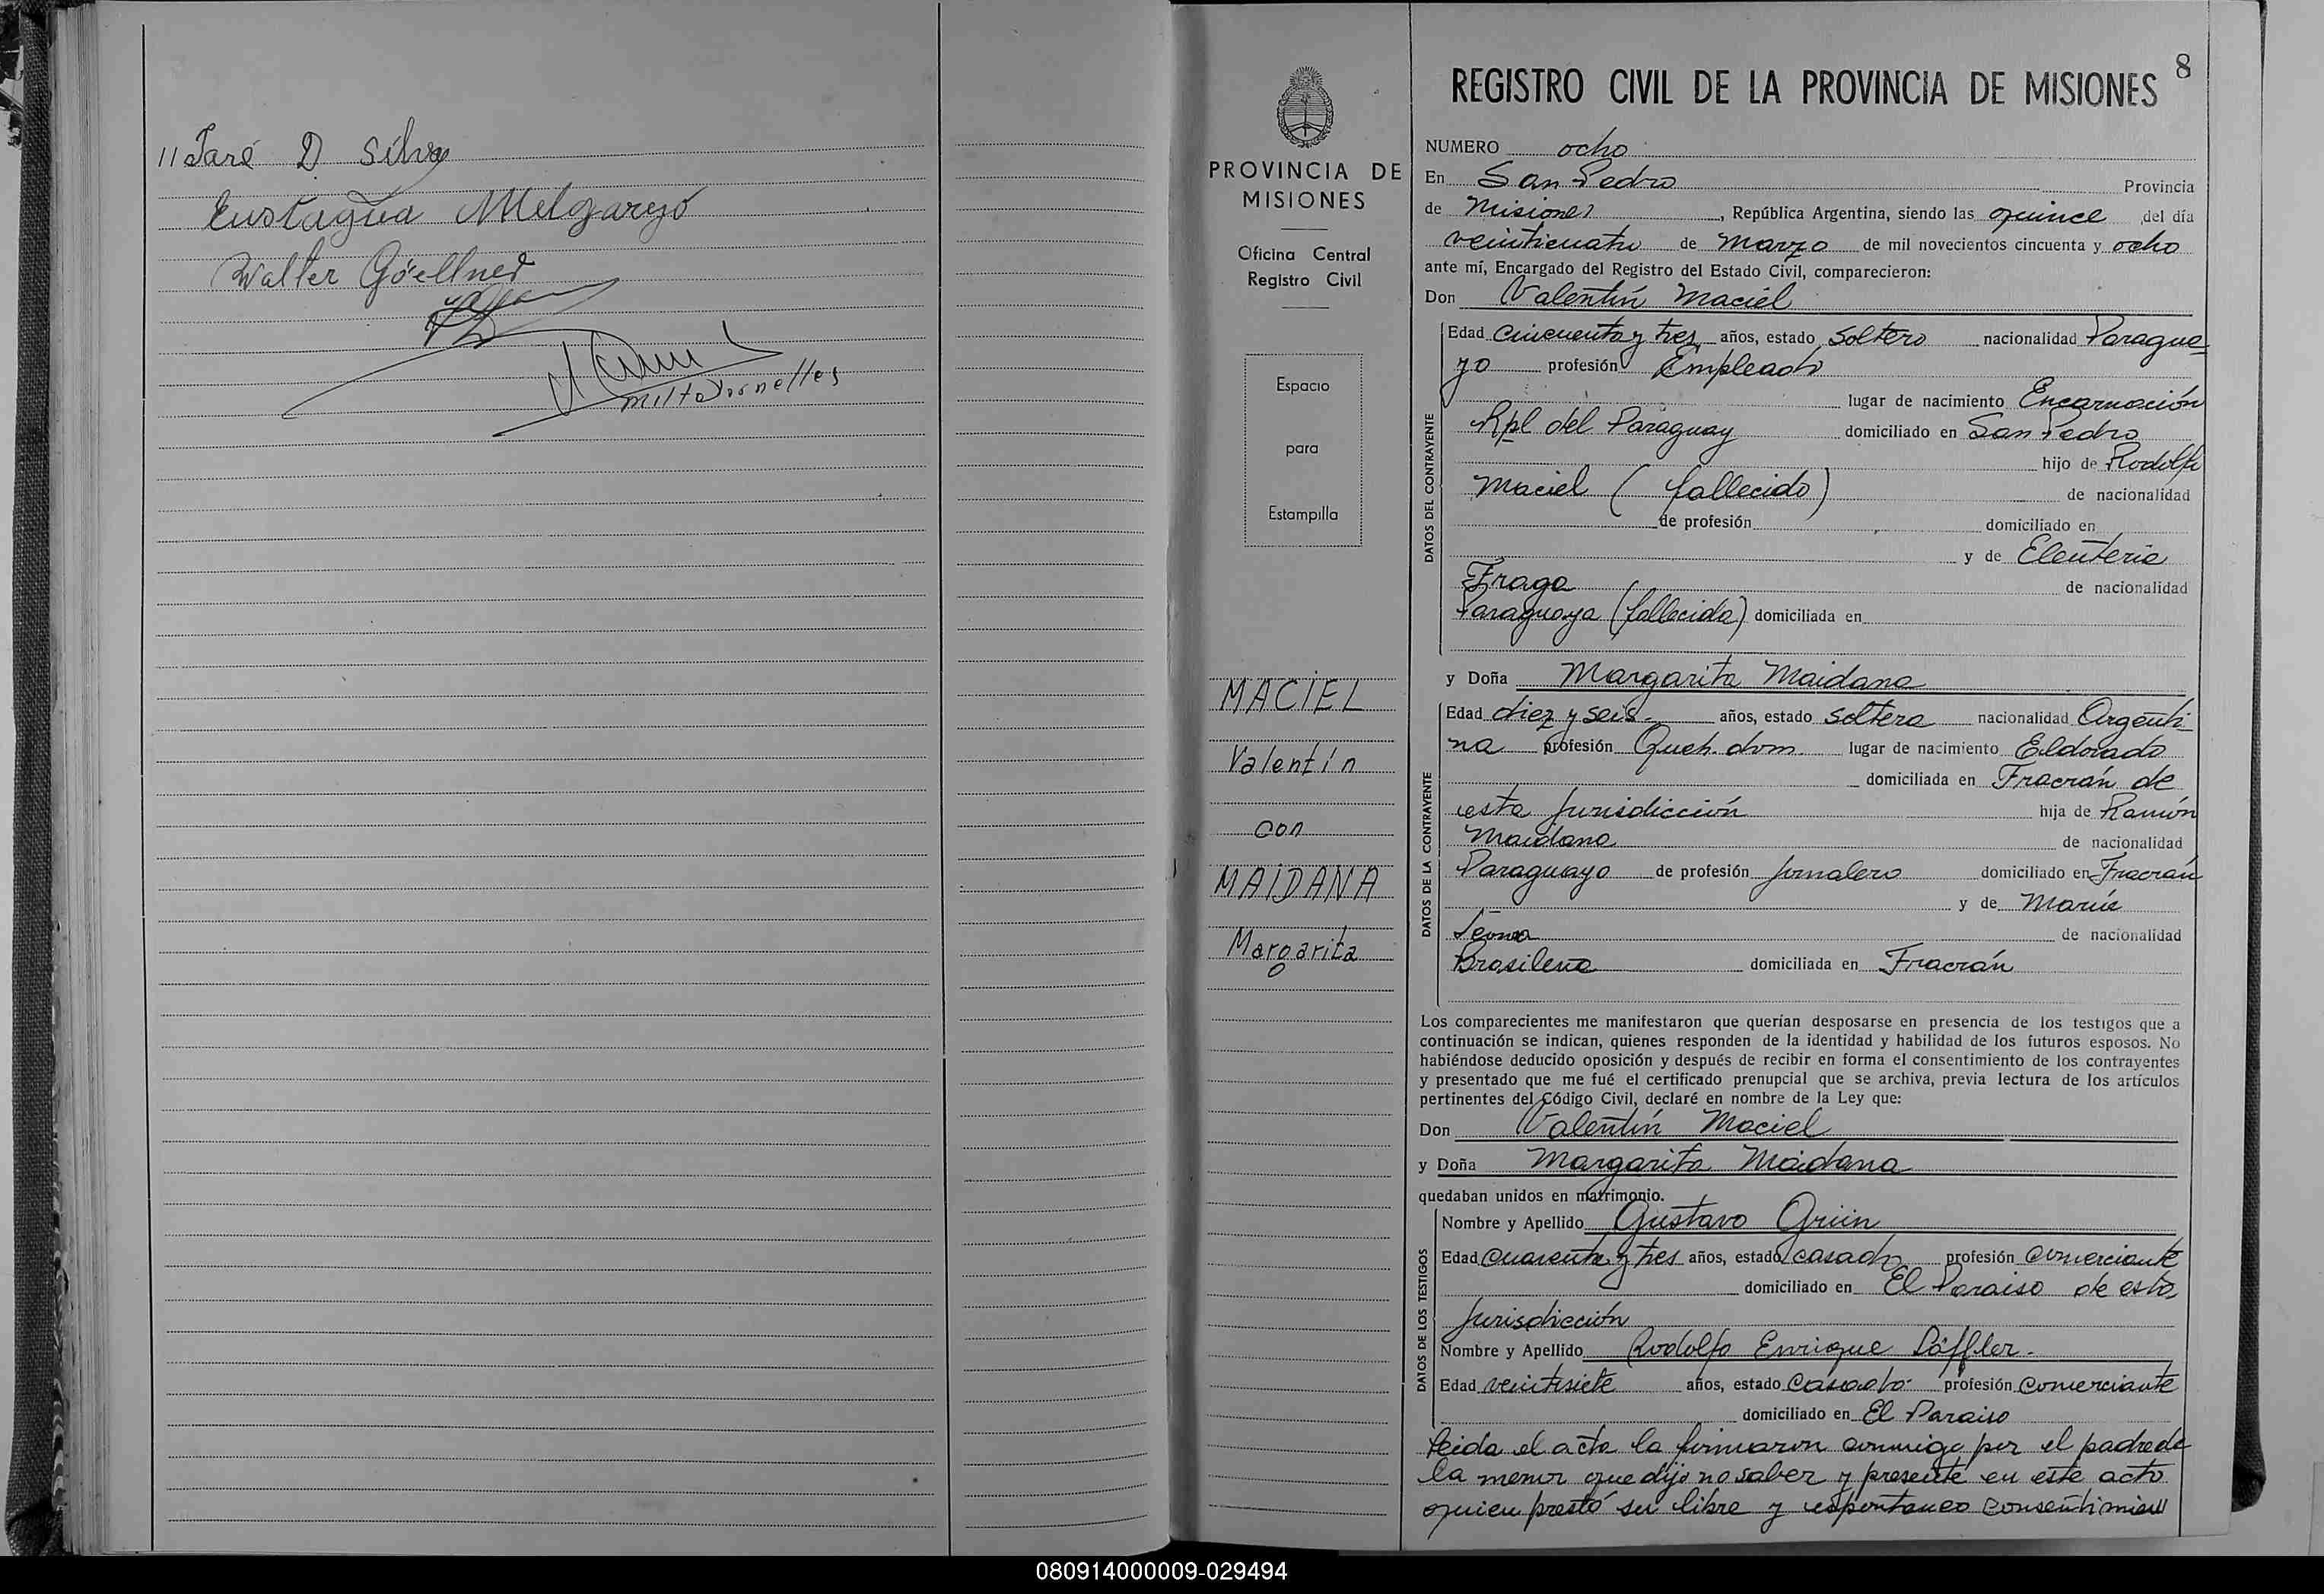 11 Jaré D Silva
Eustaquia Melgarejo
Walter Göellner
8
REGISTRO CIVIL DE LA PROVINCIA DE MISIONES
PROVINCIA DE
MISIONES
Oficina Central
Registro Civil
Espacio
para
Estampilla
MACIEL
Valentín
con
MAIDANA
Margarita
NUMERO ocho
En San Pedro Provincia
de Misiones, República Argentina, siendo las quince del día
veinticuatro de Marzo de mil novecientos cincuenta y ocho
ante mí, Encargado del Registro del Estado Civil, comparecieron:
Don Valentín Maciel
DATOS DEL CONTRAYENTE
Edad cincuenta y tres años, estado soltero nacionalidad Paragua-
yo profesión Empleado
lugar de nacimiento Encarnación
Rpl del Paraguay domiciliado en San Pedro
hijo de Rodolfo
Maciel (fallecido) de nacionalidad
de profesión domiciliado en
y de Eleuteria
Fraga de nacionalidad
Paraguaya (fallecida) domiciliada en
y Doña Margarita Maidana
DATOS DE LA CONTRAYENTE
Edad diez y seis- años, estado soltera nacionalidad Argenti-
na profesión Queh. dom. lugar de nacimiento Eldorado
domiciliada en Fracrán de
esta Jurisdicción hija de Ramón
Maidana de nacionalidad
Paraguayo de profesión Jornalero domiciliado en Fracrán
y de María
de nacionalidad
Brasilena domiciliada en Fracrán
Los comparecientes me manifestaron que querían desposarse en presencia de los testigos que a
continuación se indican, quienes responden de la identidad y habilidad de los futuros esposos. No
habiéndose deducido oposición y después de recibir en forma el consentimiento de los contrayentes
y presentado que me fué el certificado prenupcial que se archiva, previa lectura de los artículos
pertinentes del Código Civil, declaré en nombre de la Ley que:
Don Valentín Maciel
y Doña Margarita Maidana
quedaban unidos en matrimonio.
DATOS DE LOS TESTIGOS
Nombre y Apellido Gustavo Grün
Edad cuarenta y tres años, estado casado profesión comerciante
domiciliado en El Paraiso de esta
Jurisdicción
Nombre y Apellido Rodolfo Enrique Läffler.
Edad veintisiete años, estado casado- profesión comerciante
domiciliado en El Paraiso
leida el acta la firmaron conmigo por el padre de
la menor que dijo no saber y presente en este acto
quien prestó su libre y espontaneo consentimien//
080914000009-029494